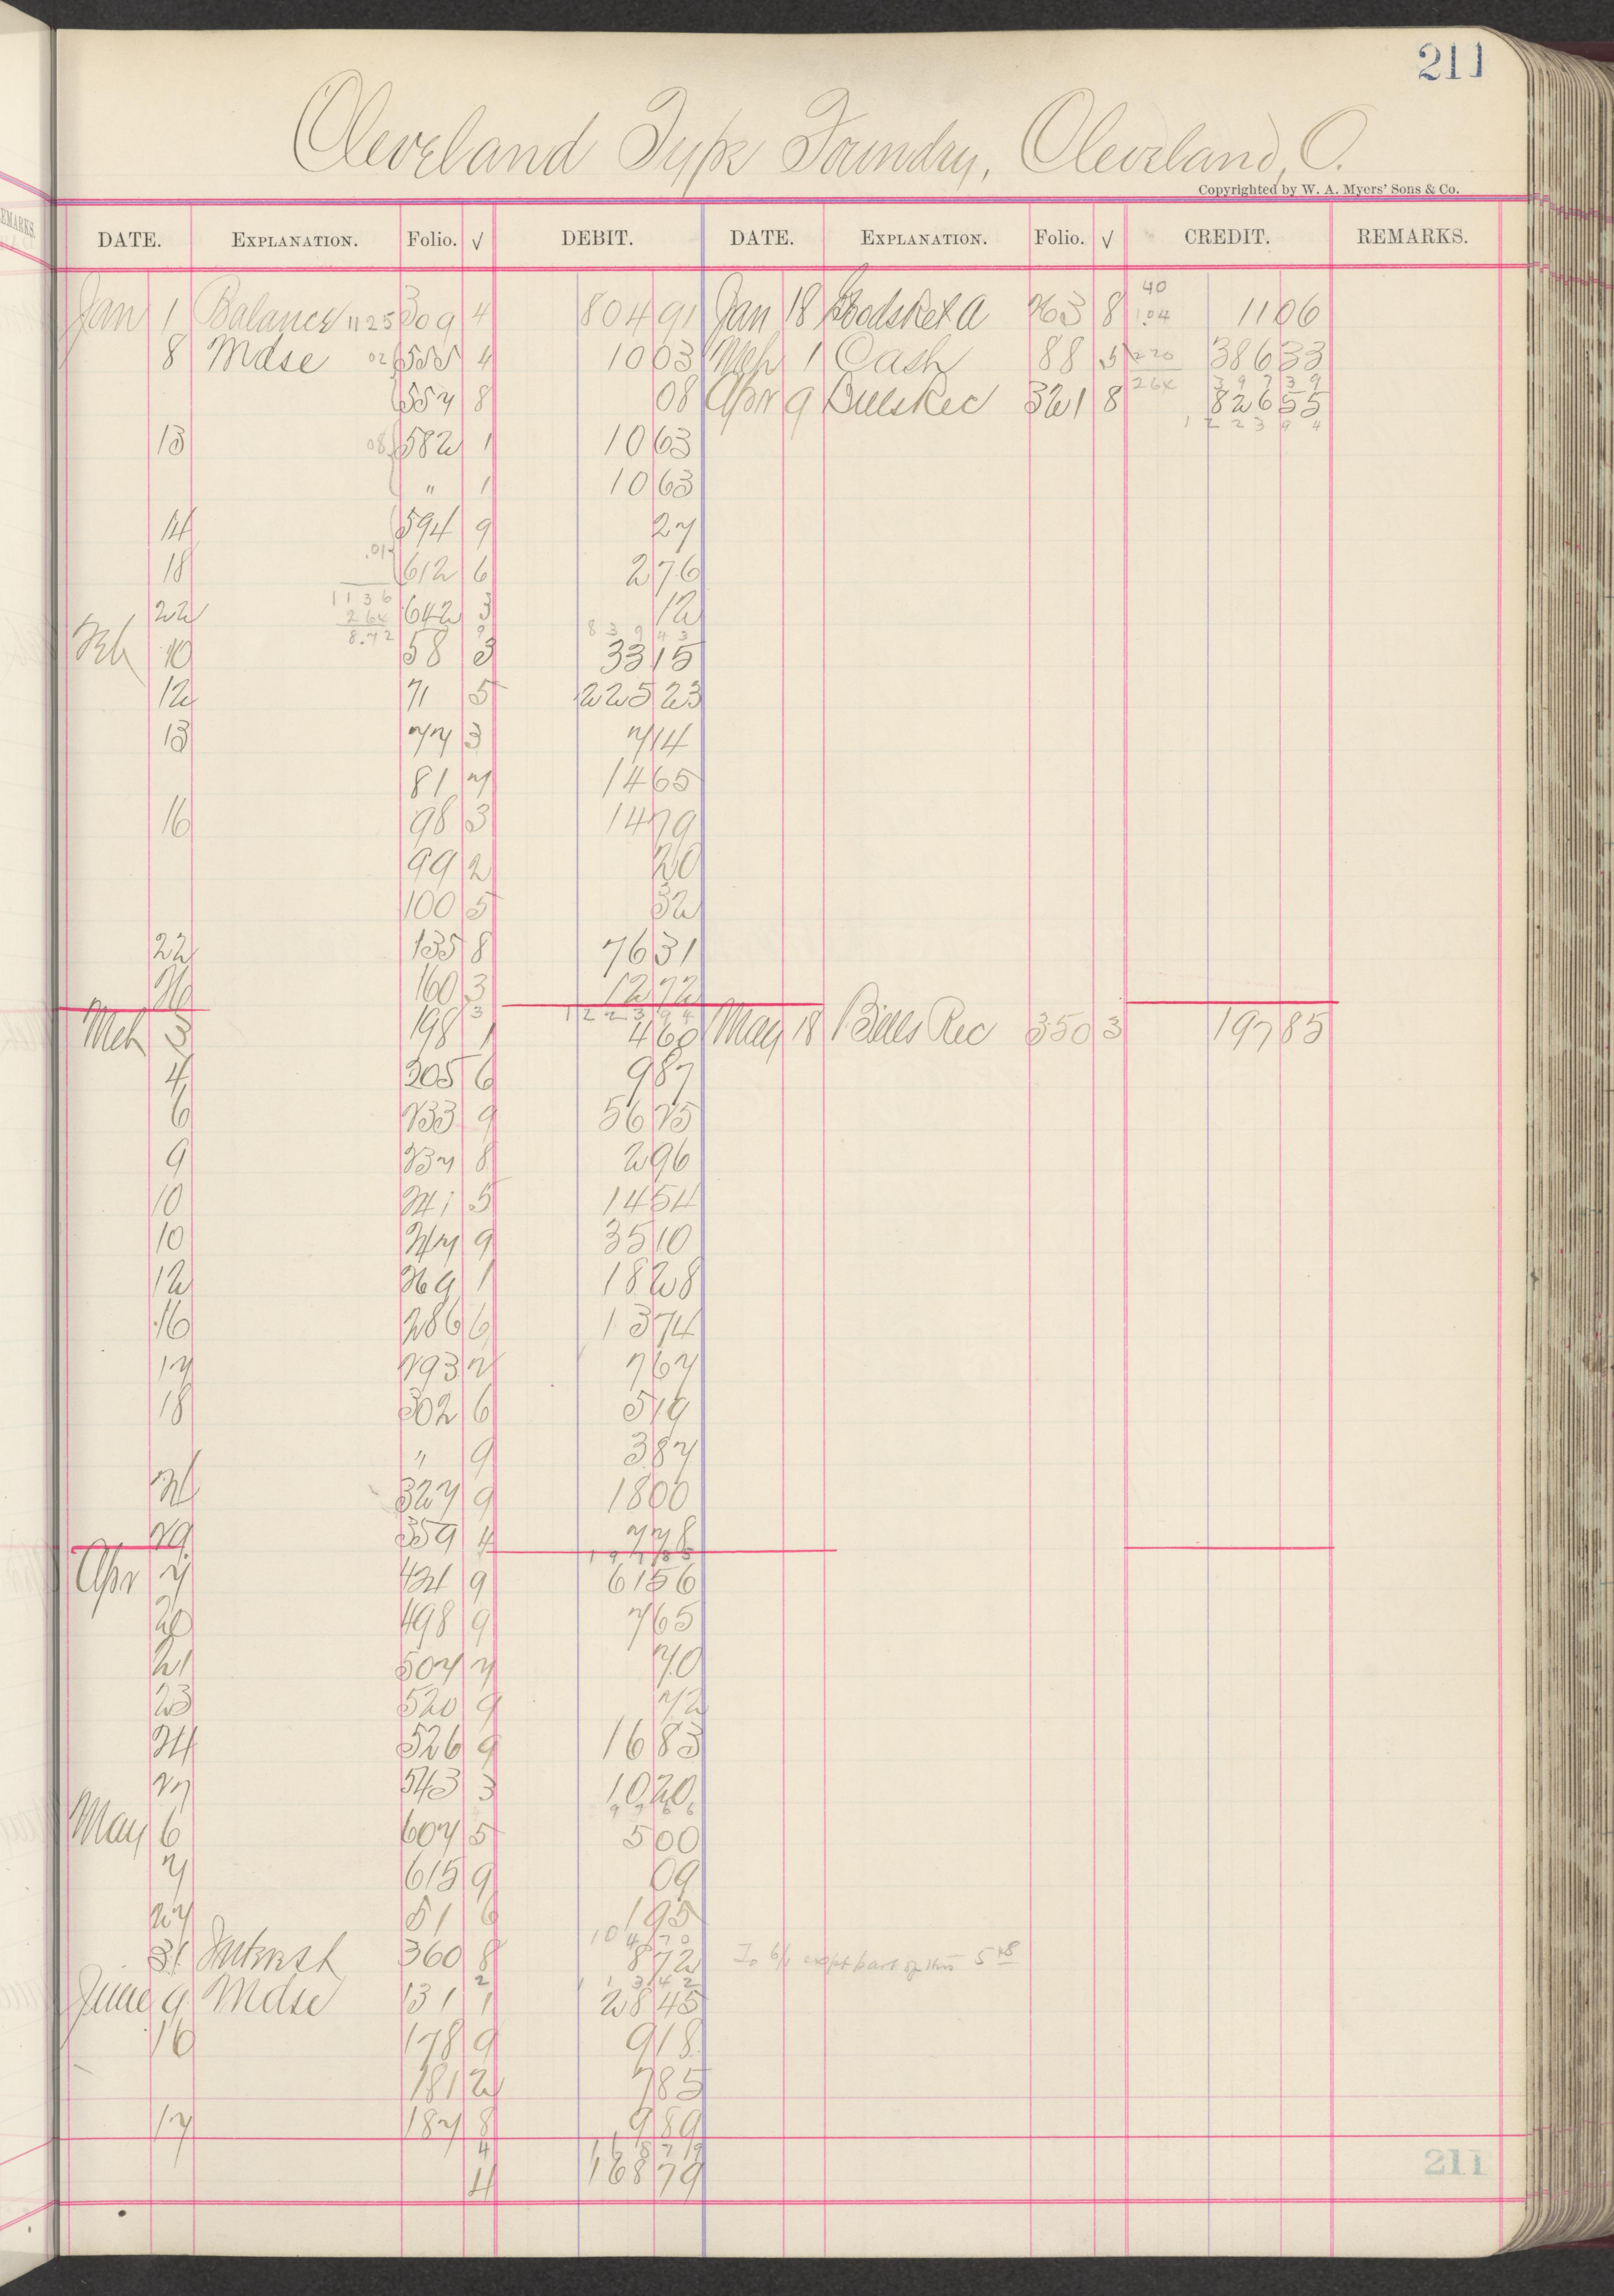 211
Cleveland Type Foundry, Cleveland, O.
Copyrighted by W. A. Myers' Sons & Co.
EMARKS.
DATE. EXPLANATION. Folio. √ DEBIT. DATE. EXPLANATION. Folio. √ CREDIT. REMARKS.
40
Jan 1 Balance 1125 309 4 804 91 Jan 18 263 8 1.04 11 06
8 Mdse 02 535 4 10 03 Mch 1 Cash 88 5 220 386 33
264 397 39
557 8 08 Apr 9 Bills Rec 321 8 826 55
1223 94
13 08 582 1 10 63
" 1 10 63
14 594 9 27
.01
18 612 6 2 76
1136
22 264 642 3 12
8.72 839 43
Feb 10 58 3 33 15
12 71 5 225 23
13 77 3 7 14
81 7 14 65
16 98 3 14 79
99 2 20
100 5 32
22 135 8 76 31
26 160 3 12 72
1223 94
Mch 3 198 1 4 60 May 18 Bills Rec 350 3 197 85
4 205 6 9 87
6 233 9 56 25
9 237 8 2 96
10 241 5 14 54
10 247 9 35 10
12 269 1 18 28
16 286 6 13 74
17 293 2 7 67
18 302 6 5 19
" 9 3 87
24 327 9 18 00
29 359 4 7 78
197 85
Apr 7 421 9 61 56
20 498 9 7 65
21 507 7 70
23 520 9 72
24 526 9 16 83
27 543 3 10 20
97 66
May 6 607 5 5 00
7 615 9 09
27 51 6 1 95
104 70
31 Interest 360 8 8 72 To 6/1 except part of this 5 48
113 42
June 9 Mdse 131 1 28 45
16 178 9 9 18
181 2 7 85
17 187 8 9 89
168 79
4 168 79
211